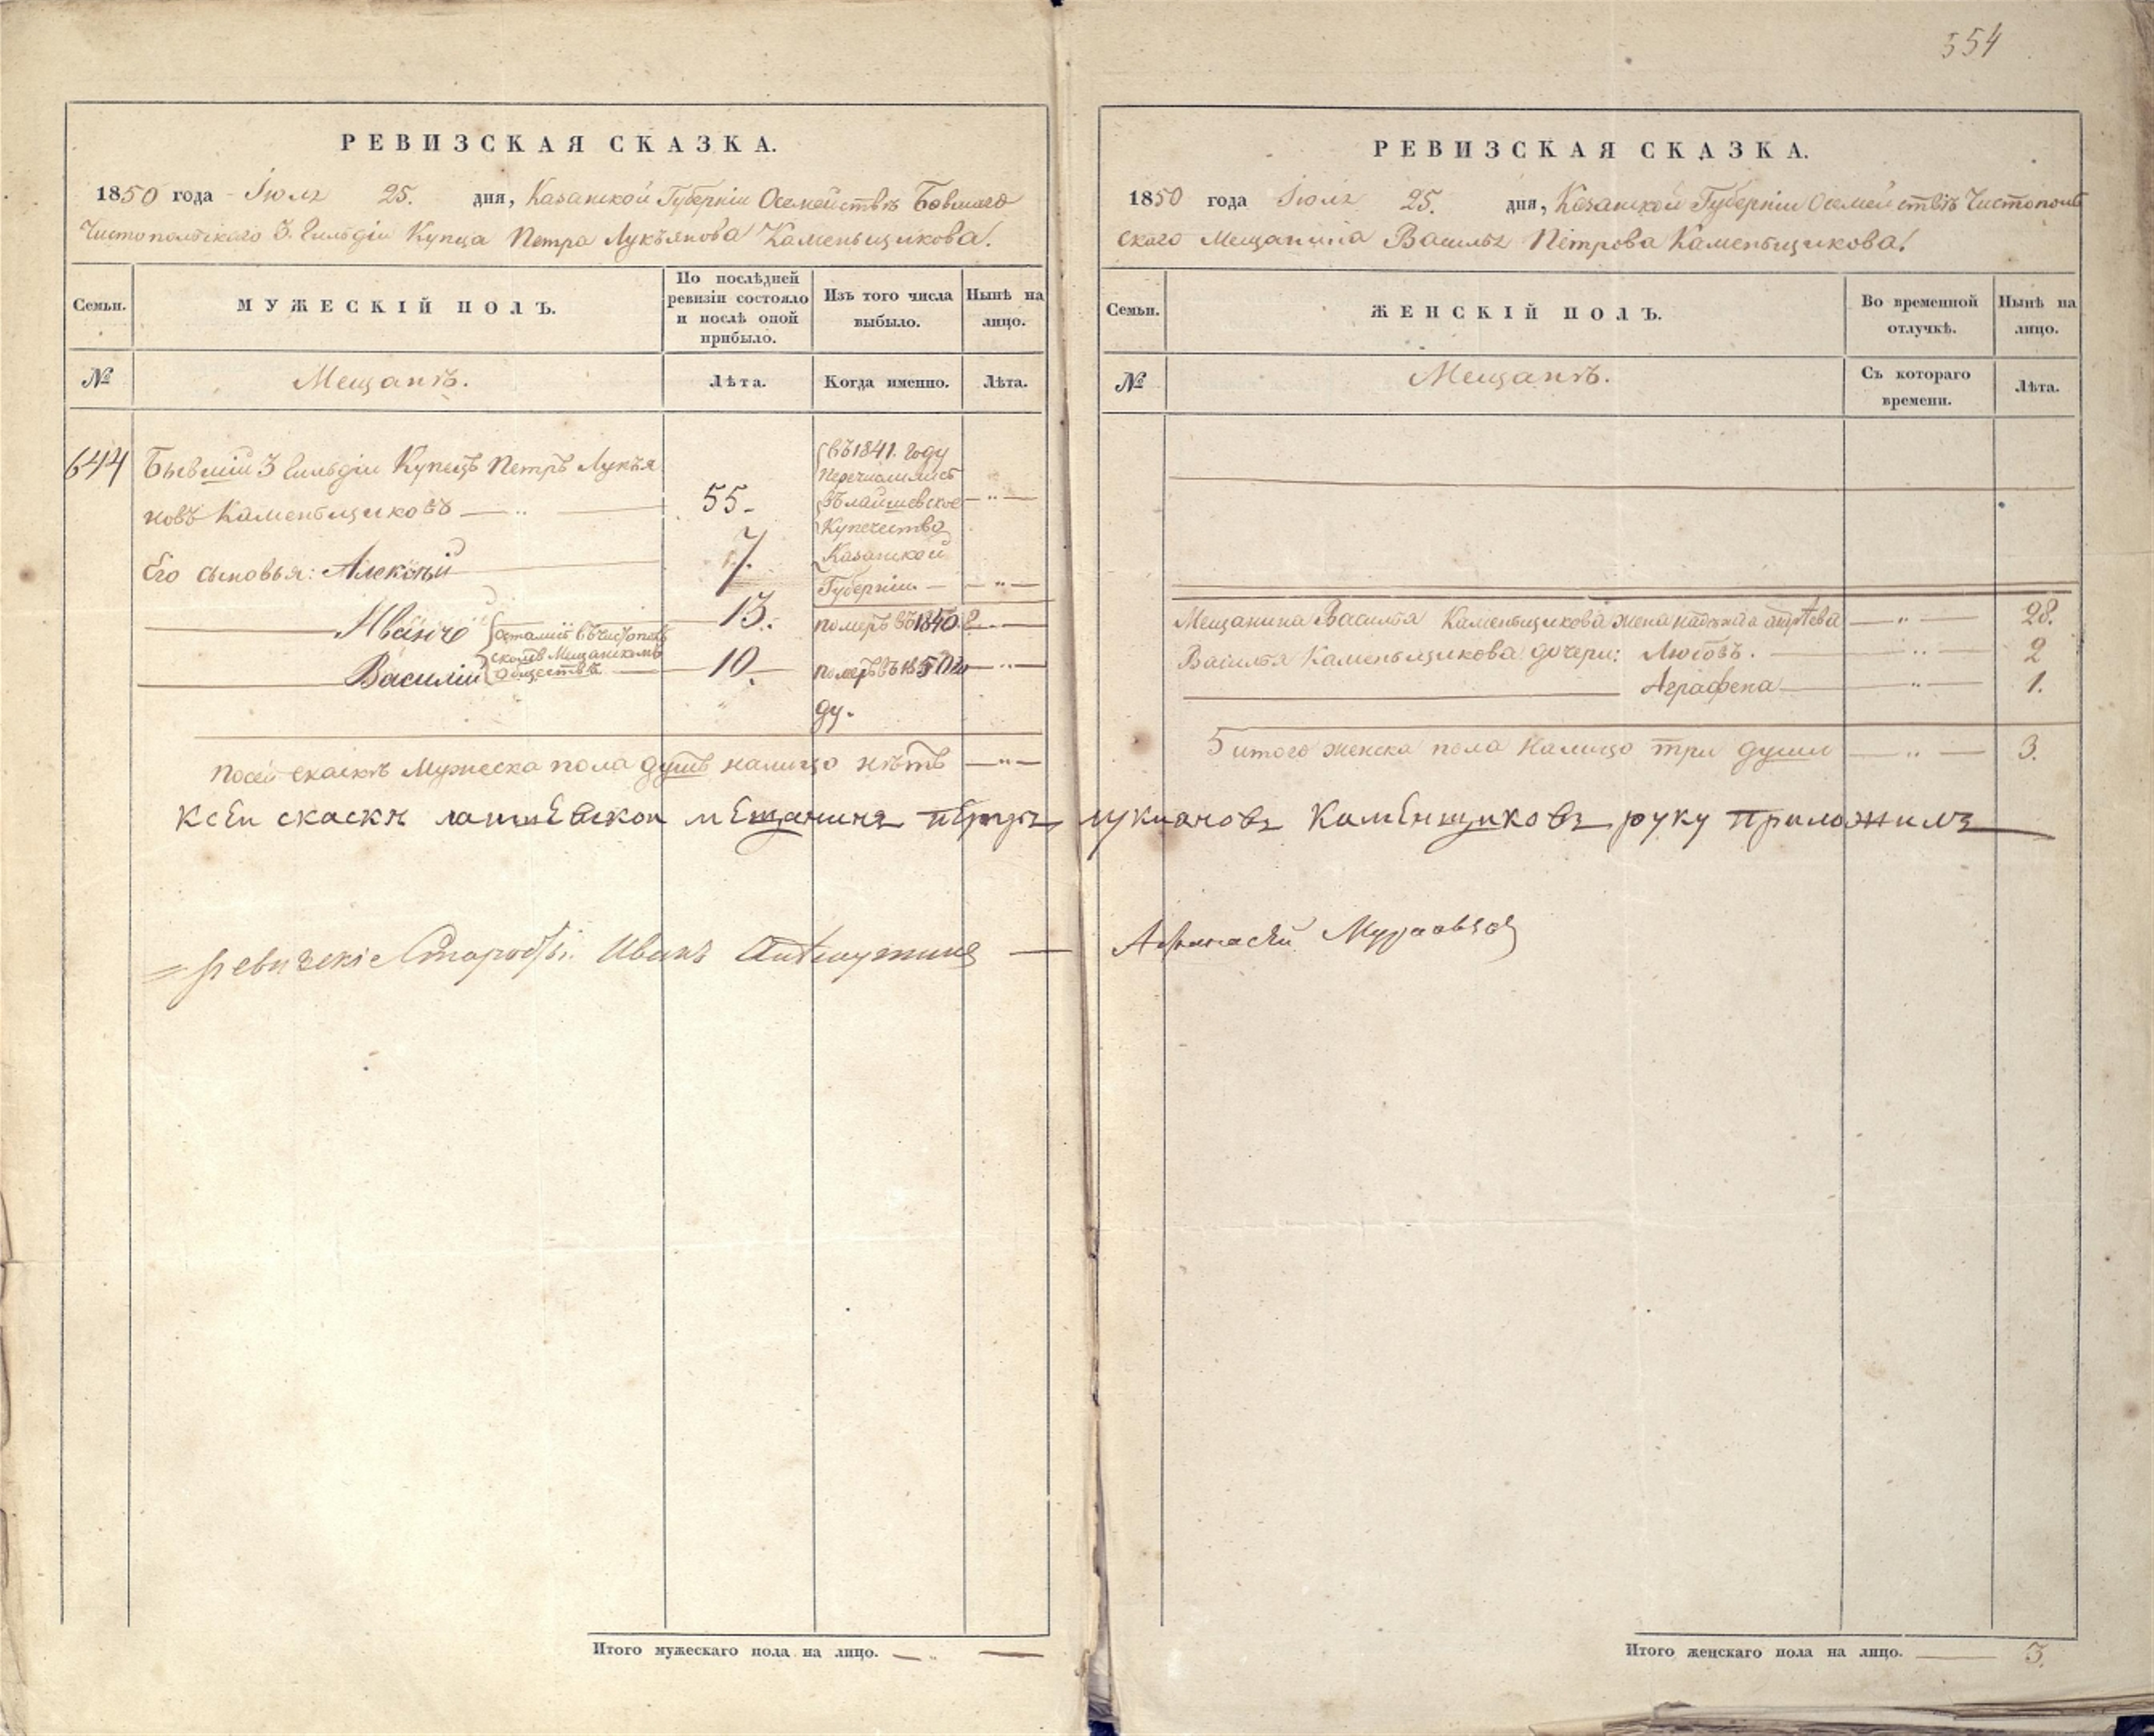 554
РЕВИЗСКАЯ СКАЗКА.
1850 года Июля 25. дня, Казанской Губерніи Осемействѣ Бывшаго
Чистопольскаго 3. Гильдіи Купца Петра Лукъянова Каменьщикова.
Семьи.
МУЖЕСКІЙ ПОЛЪ.
По послѣдней
ревизіи состояло
и послѣ оной
прибыло.
Изъ того числа
выбыло.
Нынѣ на
лицо.
№
Мещанъ.
Лѣта.
Когда именно.
Лѣта.
644
Бывшій 3 Гильдіи Купецъ Петръ Лукъя
новъ Каменьщиковъ
55
въ 1841. году
Перечислились
въ лаишевское
Купечество
Казанской
Губерніи
Его сыновья: Алексѣй
7.
Иванъ
осталис въ чистополь
скомъ Мещанскомъ
обществѣ
13.
померъ въ 1840
Василій
10
померъ въ 1850 го
ду.
посей скаскѣ Мужеска пола душъ налицо нѣтъ
Итого мужескаго пола на лицо.
РЕВИЗСКАЯ СКАЗКА.
1850 года Июля 25. дня, Казанской Губерніи Осемействѣ Чистополь
ского Мещанина Василья Петрова Каменьщикова.
Семьи.
ЖЕНСКІЙ ПОЛЪ.
Во временной
отлучкѣ.
Нынѣ на
лицо.
№
Мещанъ.
Съ котораго
времени.
Лѣта.
Мещанина Василья Каменьщикова жена надежда 28.
Василья Каменьщикова дочери: Любовъ. 2
Аграфена 1.
итого женска пола налицо три души 3.
Ксеи скаскѣ лаишевскои мещанинъ петръ лукиановъ Каменщиковъ руку приложилъ
ревизскіе Старосты. Иванъ
Афанасей
Итого женскаго пола на лицо. 3.